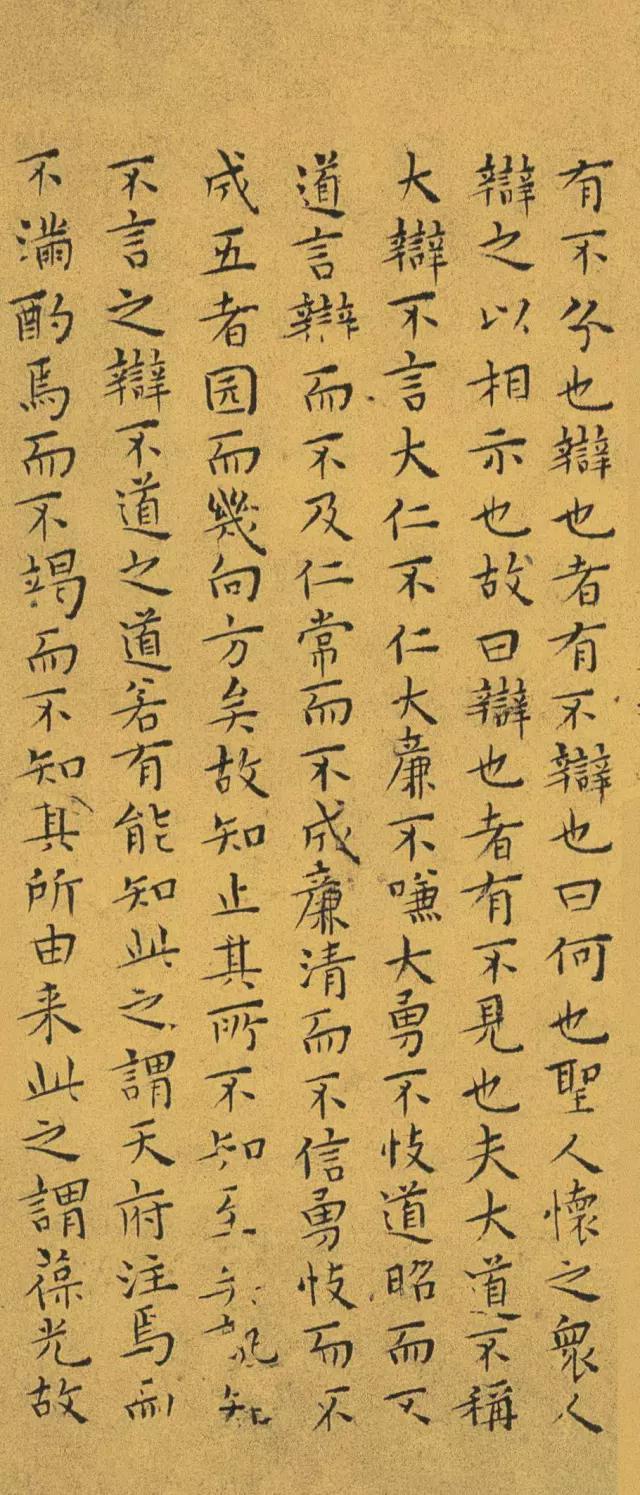 有不分也辯也者有不辯也曰何也聖人懷之眾人
辯之以相示也故曰辯也者有不見也夫大道不稱
大辯不言大仁不仁大廉不嗛大勇不忮道昭而不
道言辯而不及仁常而不成廉清而不信勇忮而不
成五者园而幾向方矣故知止其所不知至矣孰知
不言之辯不道之道若有能知此之謂天府注焉而
不滿酌焉而不竭而不知其所由来此之謂葆光故